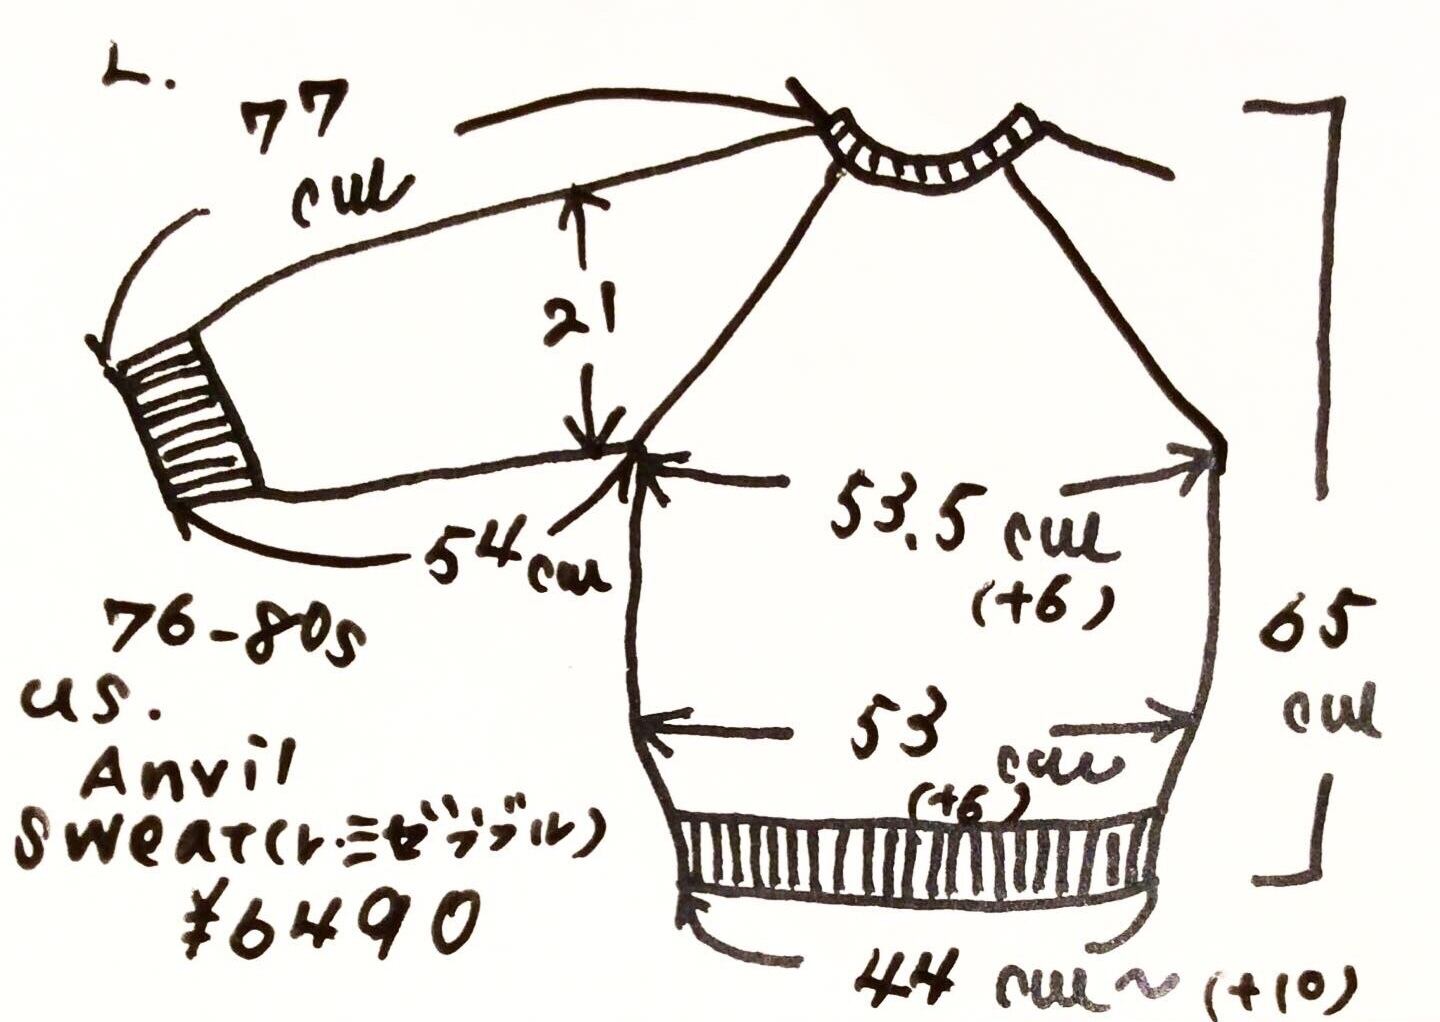 L.
77
cm
21
53.5 cm
(+6)
54cm
65
cm
53
cm
(+6)
44 cm~ (+10)
76-80s
us.
Anvil
Sweat
¥6490